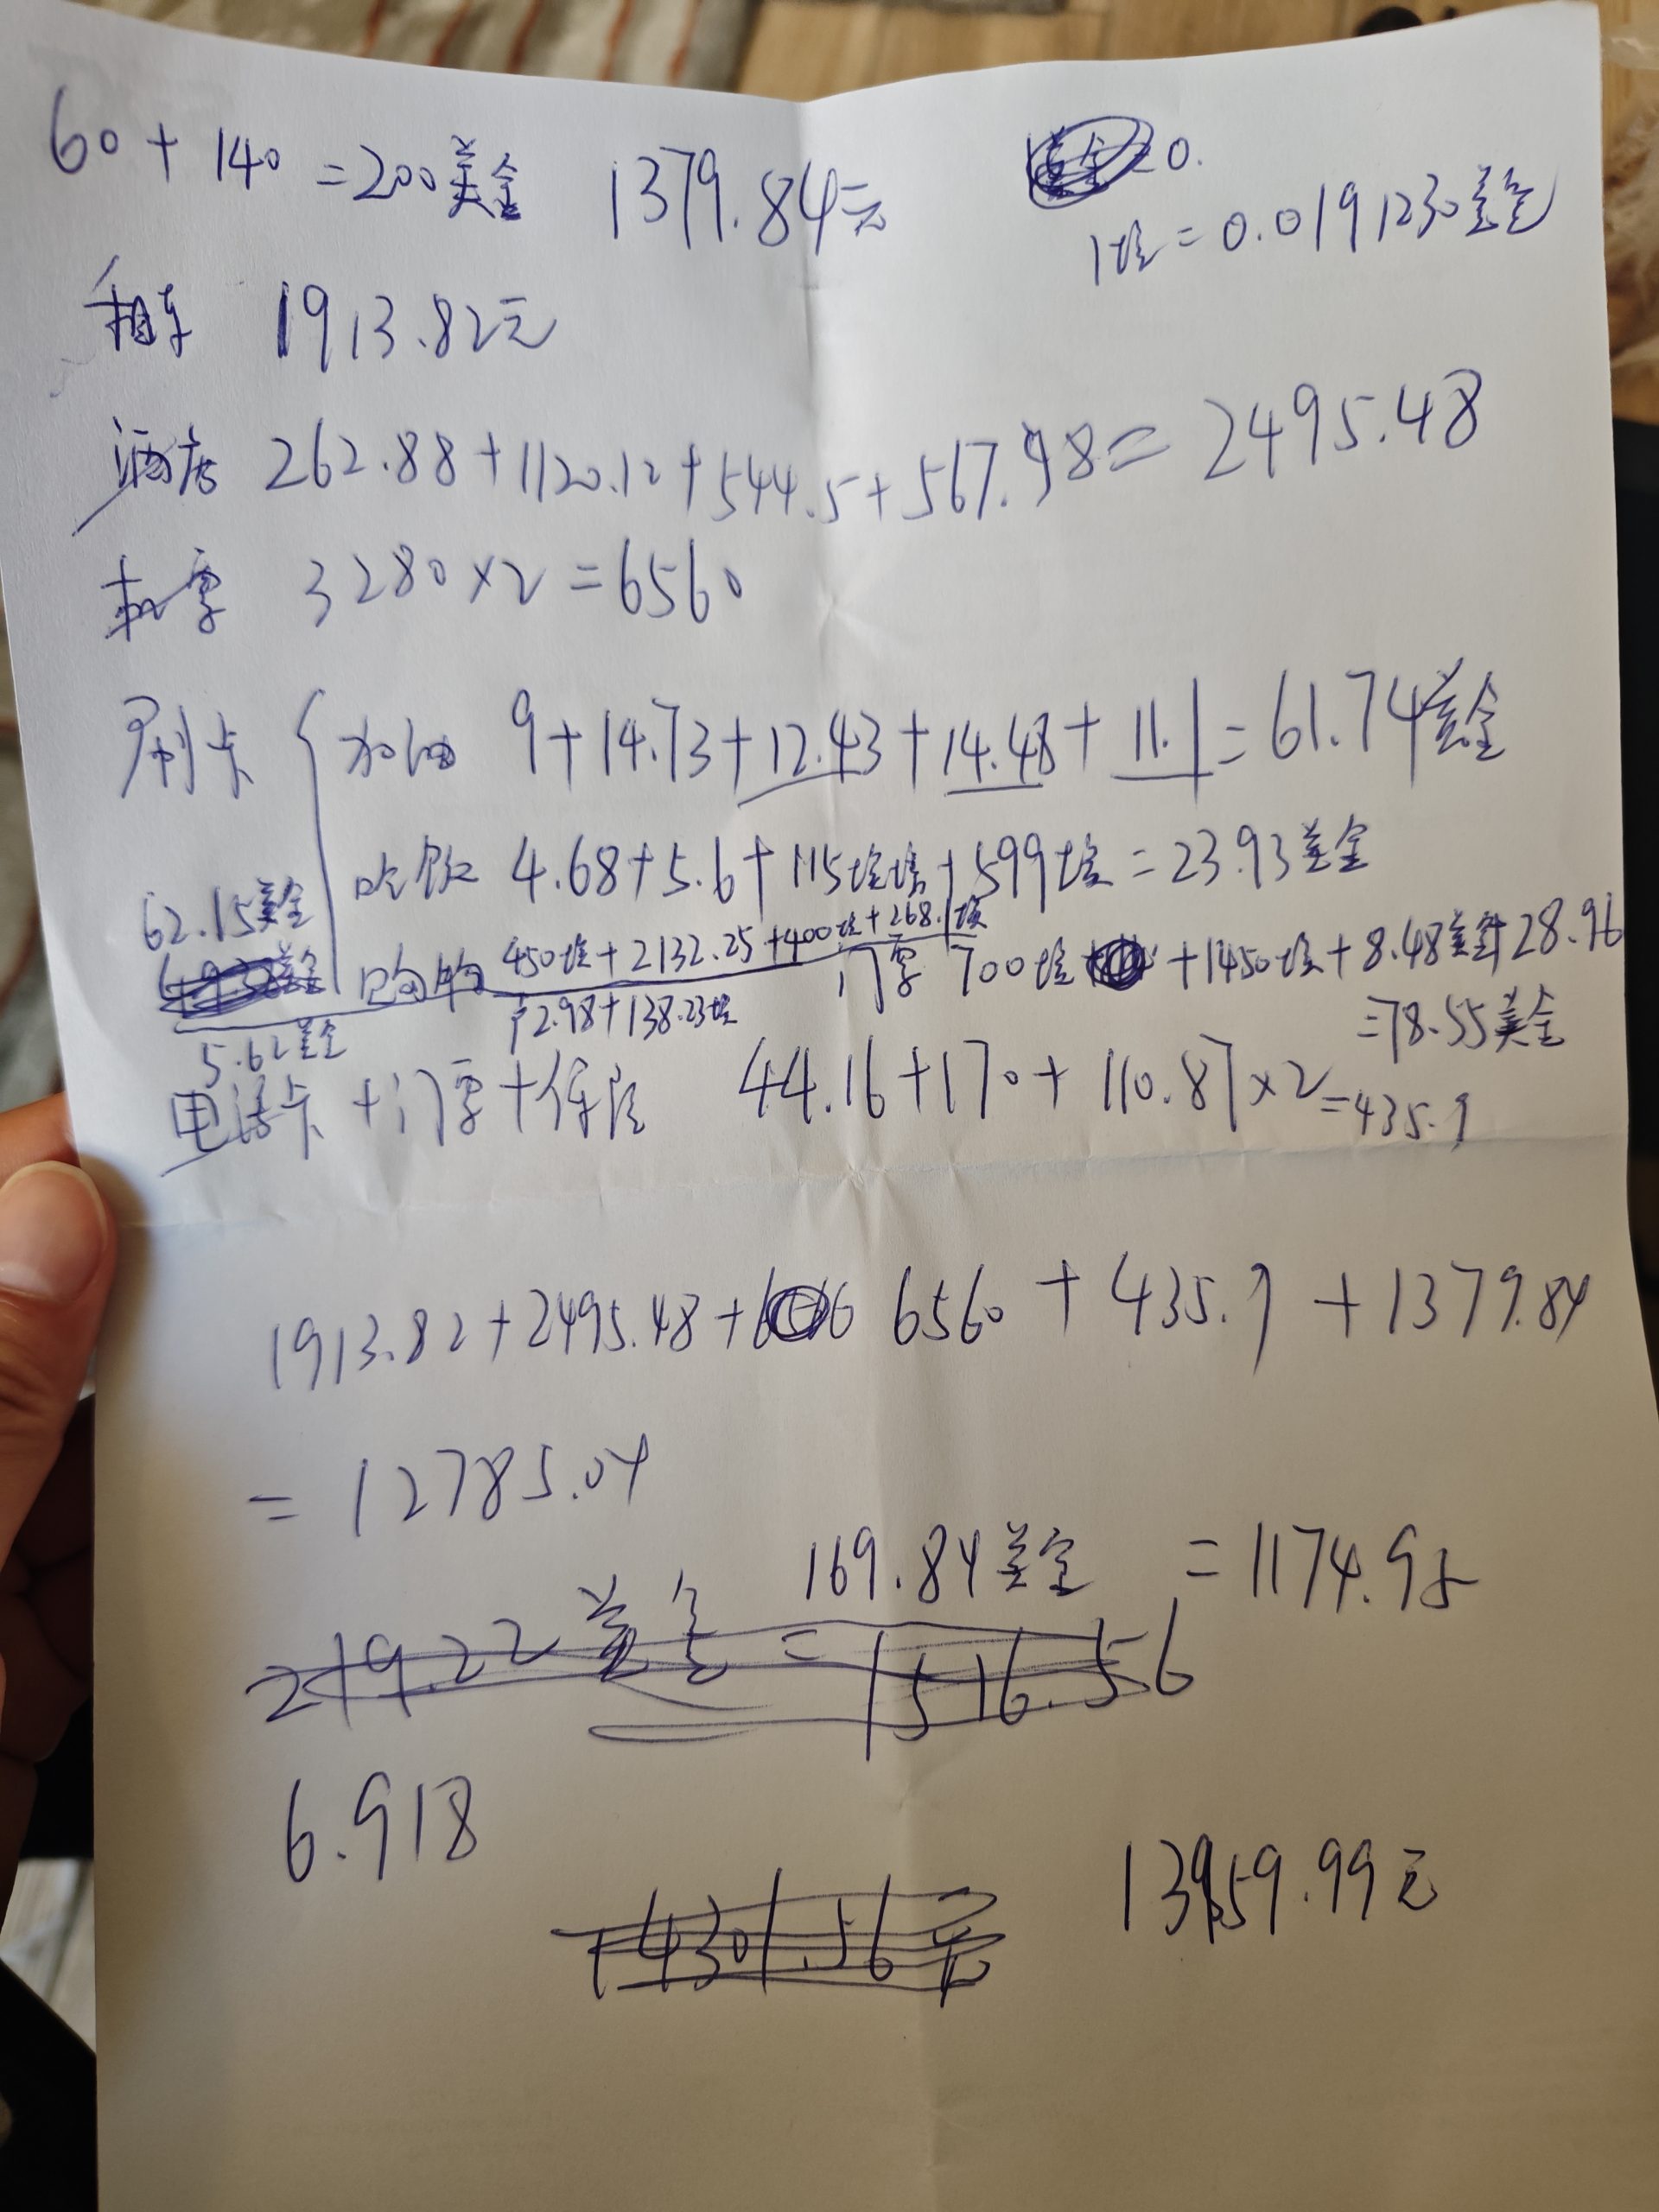 60 + 140 = 200美金 1379.84元
1埃 = 0.0191230美金
租车 1913.82元
酒店 262.88+1120.12+544.5+567.98 = 2495.48
机票 3280×2 = 6560
刷卡 { 加油 9+14.73+12.43+14.48+11.1 = 61.74美金
吃饭 4.68+5.6+115埃埃+599埃 = 23.93美金
62.15美金
购物 450埃+2132.25+400埃+268.1埃
+2.98+138.23埃
门票 700埃 +1450埃+8.48美金+28.96
=78.55美金
5.62美金
电话卡+门票+保险 44.16+170+110.87×2=435.9
1913.82+2495.48+ 6560 + 435.9 + 1379.84
= 12785.04
169.84美金 = 1174.95
219.22美金 = 1516.56
6.918
14301.56元
13959.99元